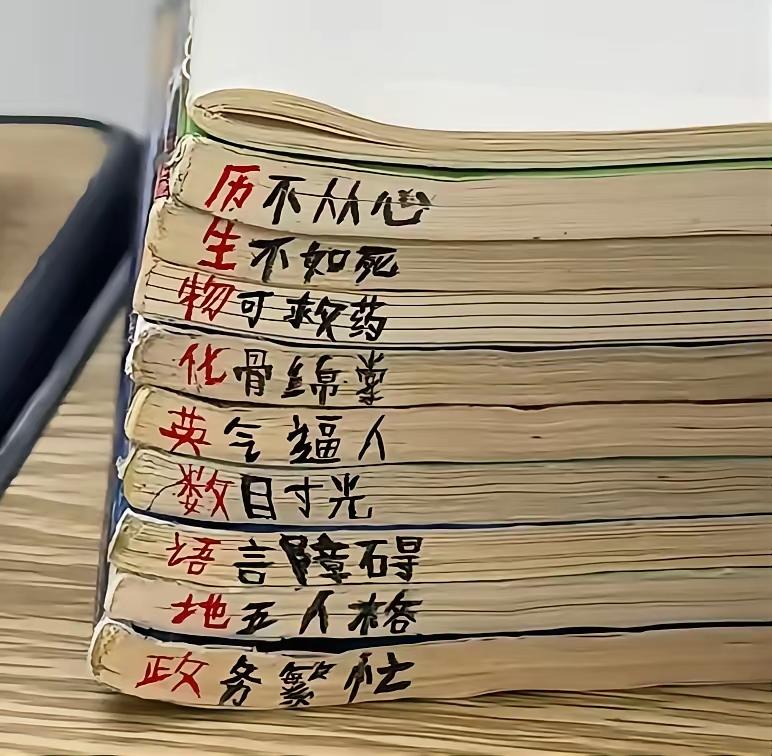 历不从心
生不如死
物可救药
化骨绵掌
英气逼人
数目寸光
语言障碍
地五人格
政务繁忙